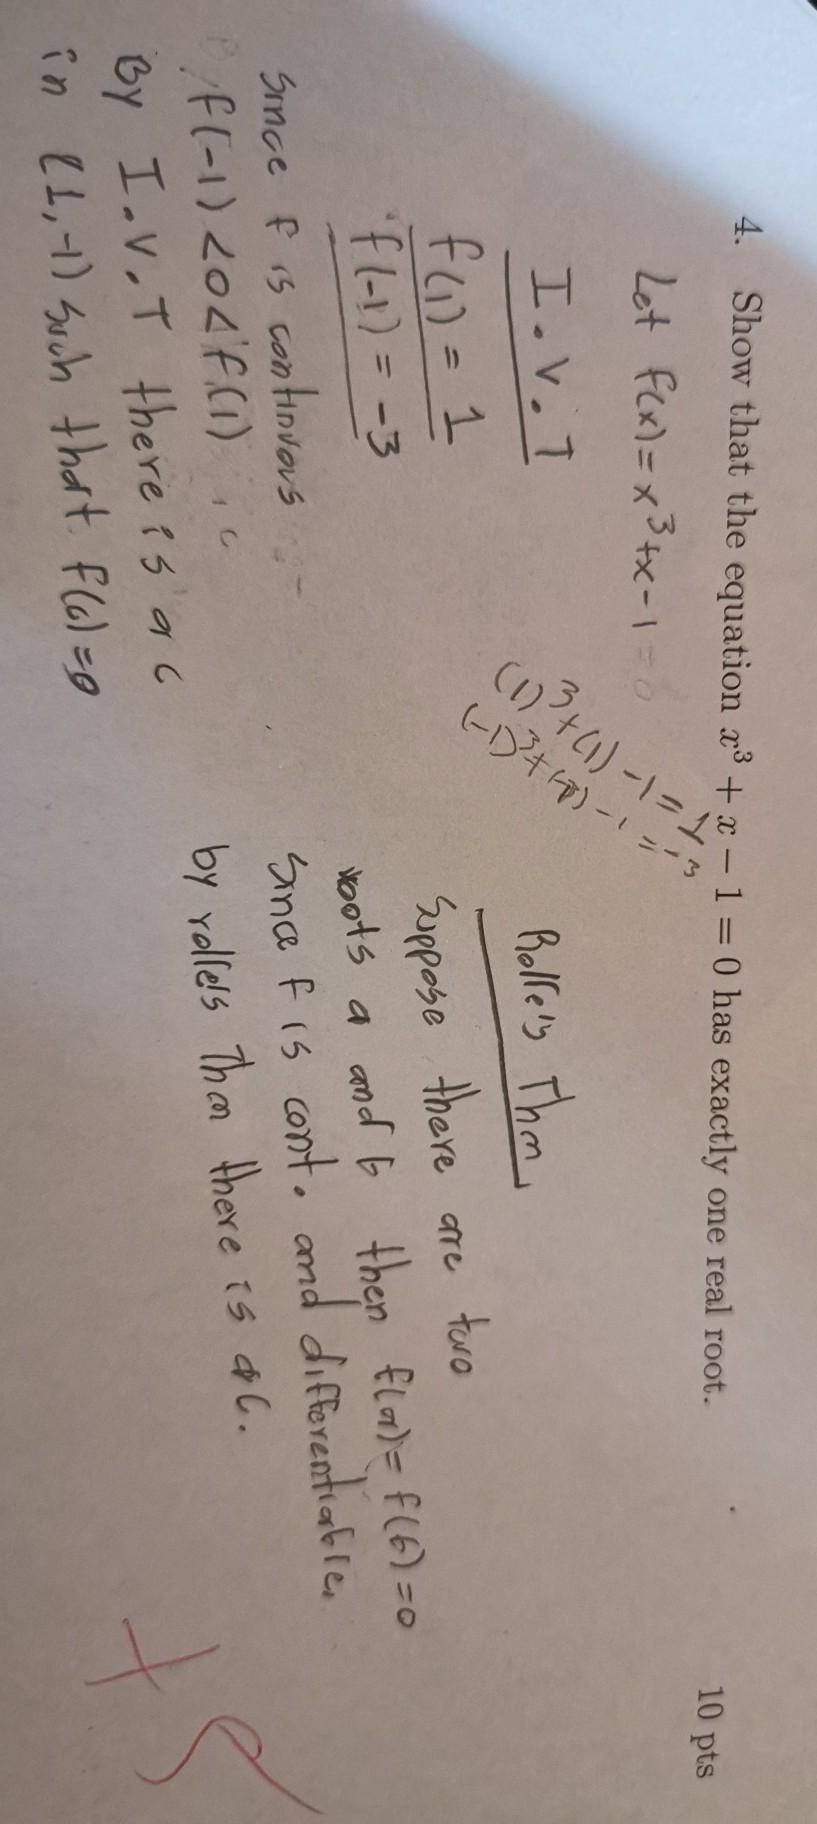 4. Show that the equation x³ + x − 1 = 0 has exactly one real root. 10 pts
Let f(x) = x³+x-1 = 0
(1)³+(1)-1=1
(-1)³+(-1)-1=-3
I.V.T
f(1) = 1
f(-1) = -3
Since f is continuous
f(-1) <0< f(1)
By I.V.T there is a c
in (1,-1) such that f(c)=0
Rolle's Thm
Suppose there are two
roots a and b then f(a)= f(b)=0
Since f is cont. and differentiable.
by rolle's Thm there is a c.
+5